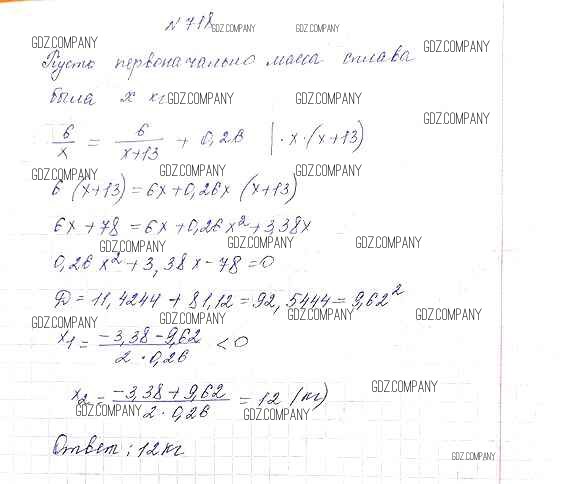 № 718 GDZ.COMPANY GDZ.COMPANY
GDZ.COMPANY GDZ.COMPANY
Пусть первоначально масса сплава
была x кг GDZ.COMPANY GDZ.COMPANY
GDZ.COMPANY
6/x = 6/(x+13) + 0,26 | · x · (x+13)
GDZ.COMPANY GDZ.COMPANY GDZ.COMPANY
6 (x+13) = 6x + 0,26x (x+13)
6x + 78 = 6x + 0,26x² + 3,38x
GDZ.COMPANY GDZ.COMPANY GDZ.COMPANY
0,26x² + 3,38x - 78 = 0
Д = 11,4244 + 81,12 = 92,5444 = 9,62²
GDZ.COMPANY GDZ.COMPANY GDZ.COMPANY GDZ.COMPANY
x₁ = (-3,38 - 9,62)/(2 · 0,26) < 0
x₂ = (-3,38 + 9,62)/(2 · 0,26) = 12 (кг) GDZ.COMPANY
GDZ.COMPANY GDZ.COMPANY
Ответ: 12 кг
GDZ.COMPANY